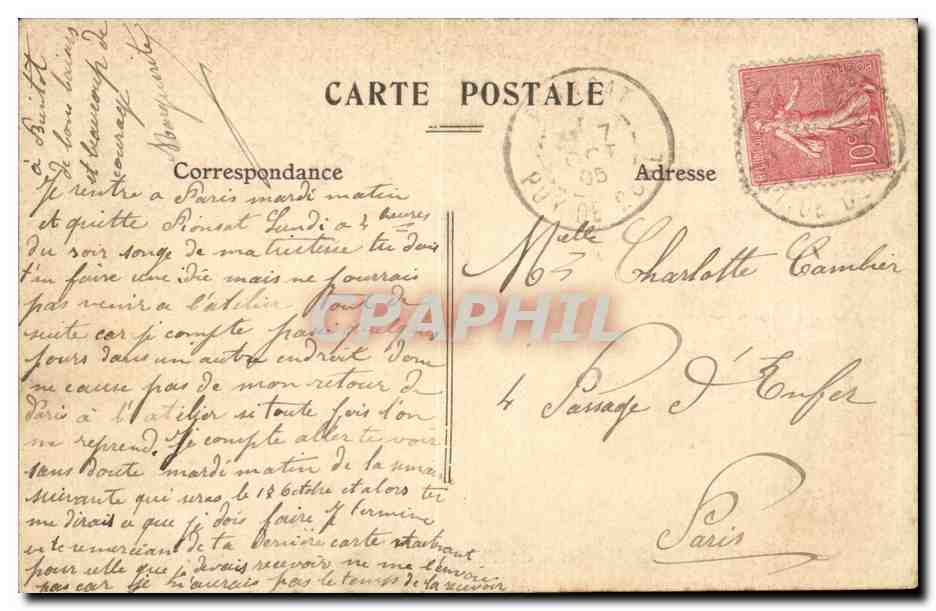 CARTE POSTALE
Correspondance
Adresse
à Bientôt
de bons baisers
et beaucoup de
courage
Marguerite
Je rentre a Paris mardi matin
et quitte Pionsat Lundi a 4 heures
du soir songe de ma tristesse tu dois
t'en faire une idée mais ne pourrais
pas venir a l'atelier tout de
suite car je compte passer quelques
jours dans un autre endroit donc
ne cause pas de mon retour de
Paris à l'atelier si toute fois l'on
me reprend. Je compte aller te voir
sans doute mardi matin de la semaine
suivante qui seras le 18 Octobre et alors tu
me dirais ce que je dois faire Je termine
en te remerciant de ta dernière carte
pour celle que je devais recevoir ne me l'envoie
pas car je n'aurais pas le temps de la recevoir
Melle Charlotte Cambier
4 Passage d'Enfer
Paris
PUY DE DOME
7
OCT
05
10c
CPAPHIL